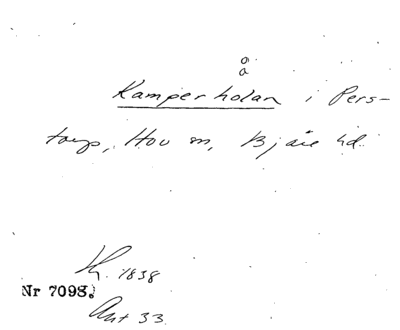 å
a
Kamperholan i Pers-
torp, Hov sn, Bjäre hd.
Kh. 1838
Nr 7098.
Ant 33